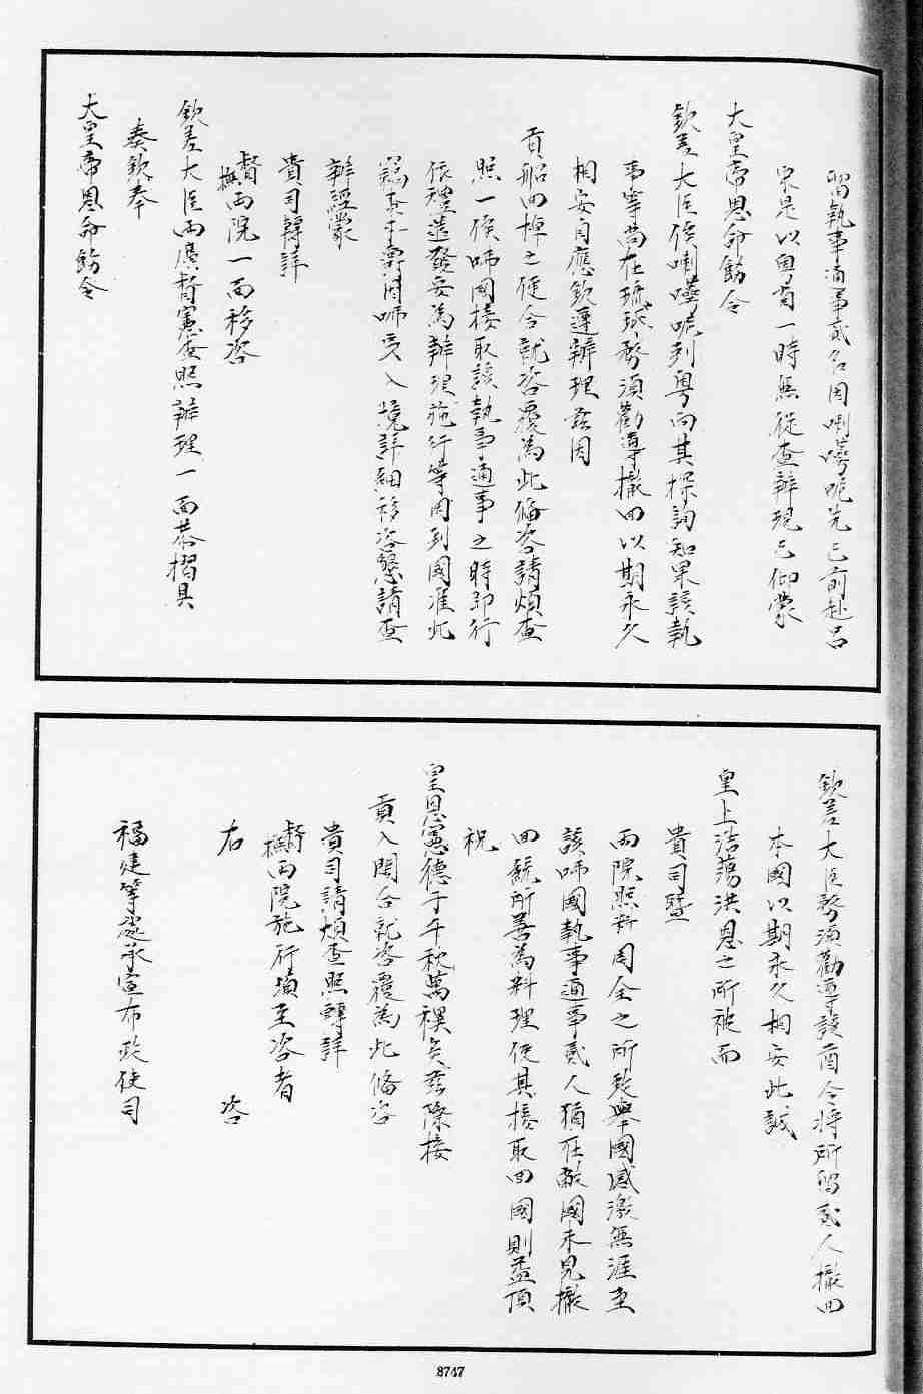 留執事通事貳名因唎嘮呢先已前赴呂
宋是以粤省一時無從查辦現已仰蒙
大皇帝恩命飭令
欽差大臣俟唎嘮呢到粤向其探詢知果該執
事等尚在琉球務須勸導撤回以期永久
相安自應欽遵辦理茲因
貢船回棹之便合就咨覆為此備咨請煩查
照一俟咈國接取該執事通事之時即行
依禮遣發妥為辦理施行等因到國准此
竊查本爵因咈夷入境詳細移咨懇請查
辦經蒙
貴司轉詳
督撫兩院一面移咨
欽差大臣兩廣督憲查照辦理一面恭摺具
奏欽奉
大皇帝恩命飭令
欽差大臣務須勸導該酋令將所留貳人撤回
本國以期永久相安此誠
皇上浩蕩洪恩之所被而
貴司暨
兩院照料周全之所致舉國感激無涯至
該咈國執事通事貳人猶在敝國未見撤
回統所善為料理使其接取回國則益頂
祝
皇恩憲德于千秋萬禩矣茲際接
貢入閩合就咨覆為此備咨
貴司請煩查照轉詳
督撫兩院施行須至咨者
右　咨
福建等處承宣布政使司
8747